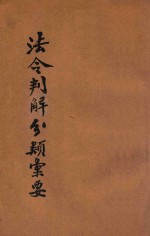 法令判解分類彙要